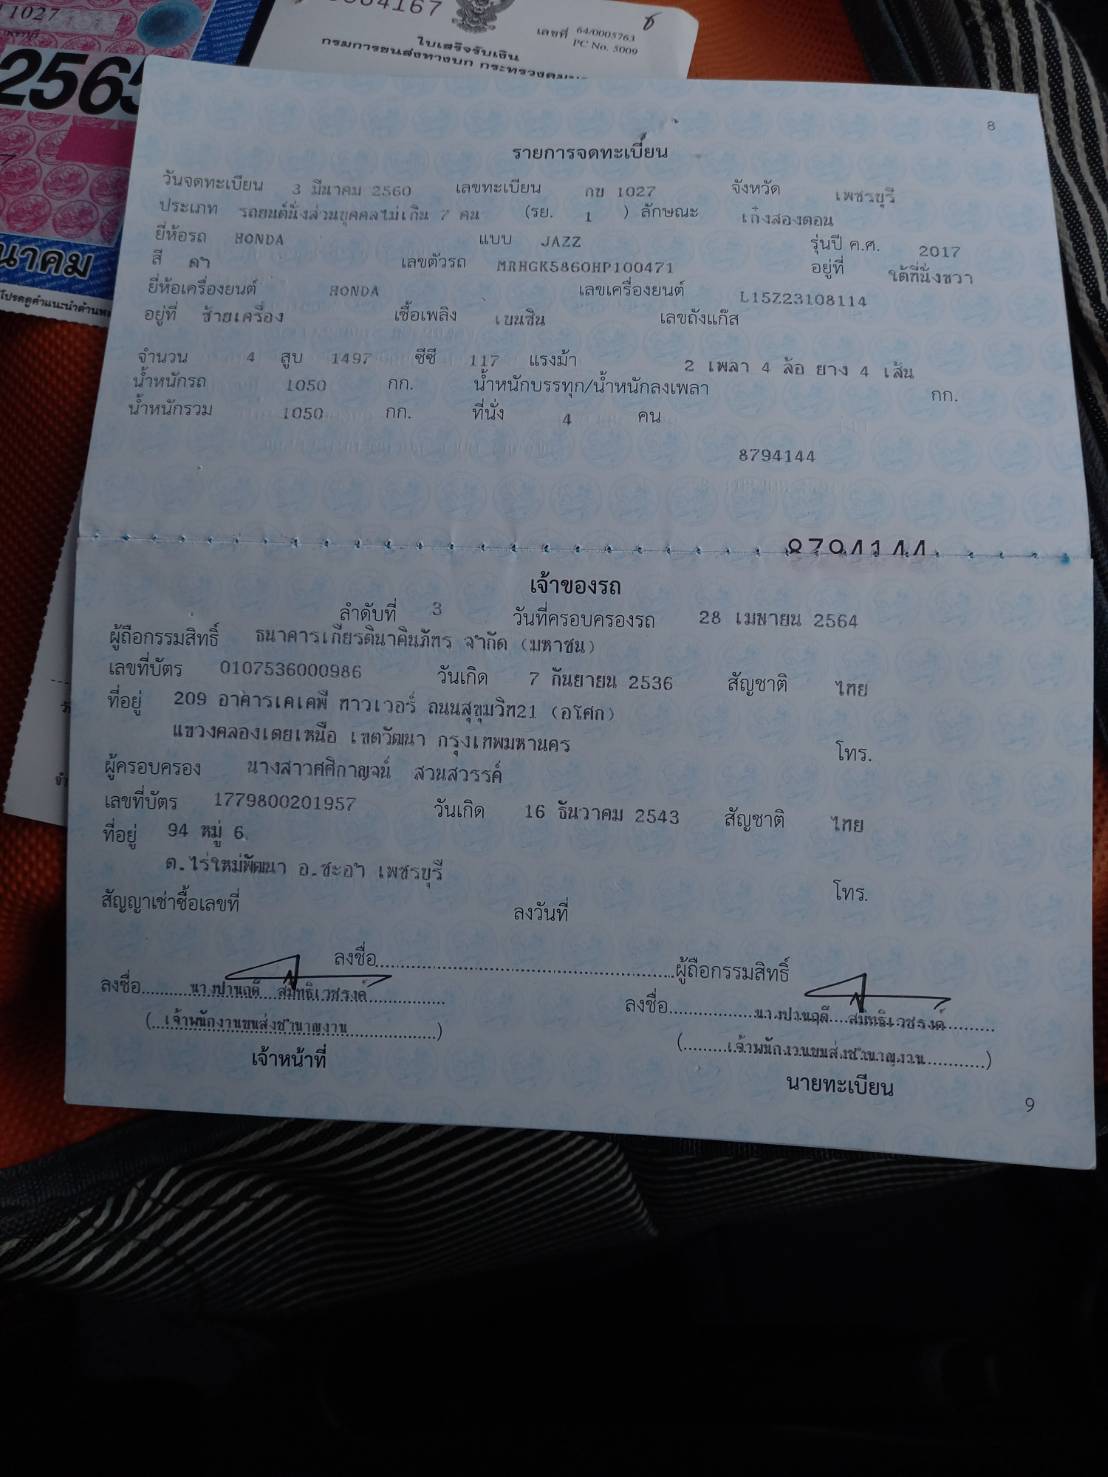 11027
2565
นาคม
โปรดดูคำแนะนำด้านห
4167
เลขที่ 64/0005763
PC No. 5009
ใบเสร็จรับเงิน
กรมการขนส่งทางบก กระทรวงคมน
8
รายการจดทะเบียน
วันจดทะเบียน 3 มีนาคม 2560 เลขทะเบียน กข 1027 จังหวัด เพชรบุรี
ประเภท รถยนต์นั่งส่วนบุคคลไม่เกิน 7 คน (รย. 1 ) ลักษณะ เก๋งสองตอน
ยี่ห้อรถ HONDA แบบ JAZZ รุ่นปี ค.ศ. 2017
สี ดำ เลขตัวรถ MRHGK5860HP100471 อยู่ที่ ใต้ที่นั่งขวา
ยี่ห้อเครื่องยนต์ HONDA เลขเครื่องยนต์ L15Z23108114
อยู่ที่ ซ้ายเครื่อง เชื้อเพลิง เบนซิน เลขถังแก๊ส
จำนวน 4 สูบ 1497 ซีซี 117 แรงม้า 2 เพลา 4 ล้อ ยาง 4 เส้น
น้ำหนักรถ 1050 กก. น้ำหนักบรรทุก/น้ำหนักลงเพลา กก.
น้ำหนักรวม 1050 กก. ที่นั่ง 4 คน
8794144
8794144
เจ้าของรถ
ลำดับที่ 3 วันที่ครอบครองรถ 28 เมษายน 2564
ผู้ถือกรรมสิทธิ์ ธนาคารเกียรตินาคินภัทร จำกัด (มหาชน)
เลขที่บัตร 0107536000986 วันเกิด 7 กันยายน 2536 สัญชาติ ไทย
ที่อยู่ 209 อาคารเคเคพี ทาวเวอร์ ถนนสุขุมวิท21 (อโศก)
แขวงคลองเตยเหนือ เขตวัฒนา กรุงเทพมหานคร โทร.
ผู้ครอบครอง นางสาวศศิกาญจน์ สวนสวรรค์
เลขที่บัตร 1779800201957 วันเกิด 16 ธันวาคม 2543 สัญชาติ ไทย
ที่อยู่ 94 หมู่ 6
ต.ไร่ใหม่พัฒนา อ.ชะอำ เพชรบุรี โทร.
สัญญาเช่าซื้อเลขที่ ลงวันที่
ลงชื่อ ผู้ถือกรรมสิทธิ์
ลงชื่อ นางปานฤดี สมิทธิเวชรงค์ ลงชื่อ นางปานฤดี สมิทธิเวชรงค์
(เจ้าพนักงานขนส่งชำนาญงาน) (เจ้าพนักงานขนส่งชำนาญงาน)
เจ้าหน้าที่ นายทะเบียน
9